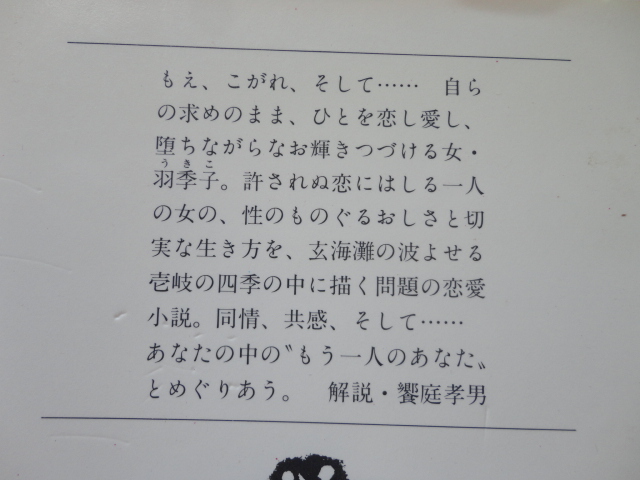 もえ、こがれ、そして…… 自ら
の求めのまま、ひとを恋し愛し、
堕ちながらなお輝きつづける女・
うきこ
羽季子。許されぬ恋にはしる一人
の女の、性のものぐるおしさと切
実な生き方を、玄海灘の波よせる
壱岐の四季の中に描く問題の恋愛
小説。同情、共感、そして……
あなたの中の〝もう一人のあなた〟
とめぐりあう。 解説・饗庭孝男